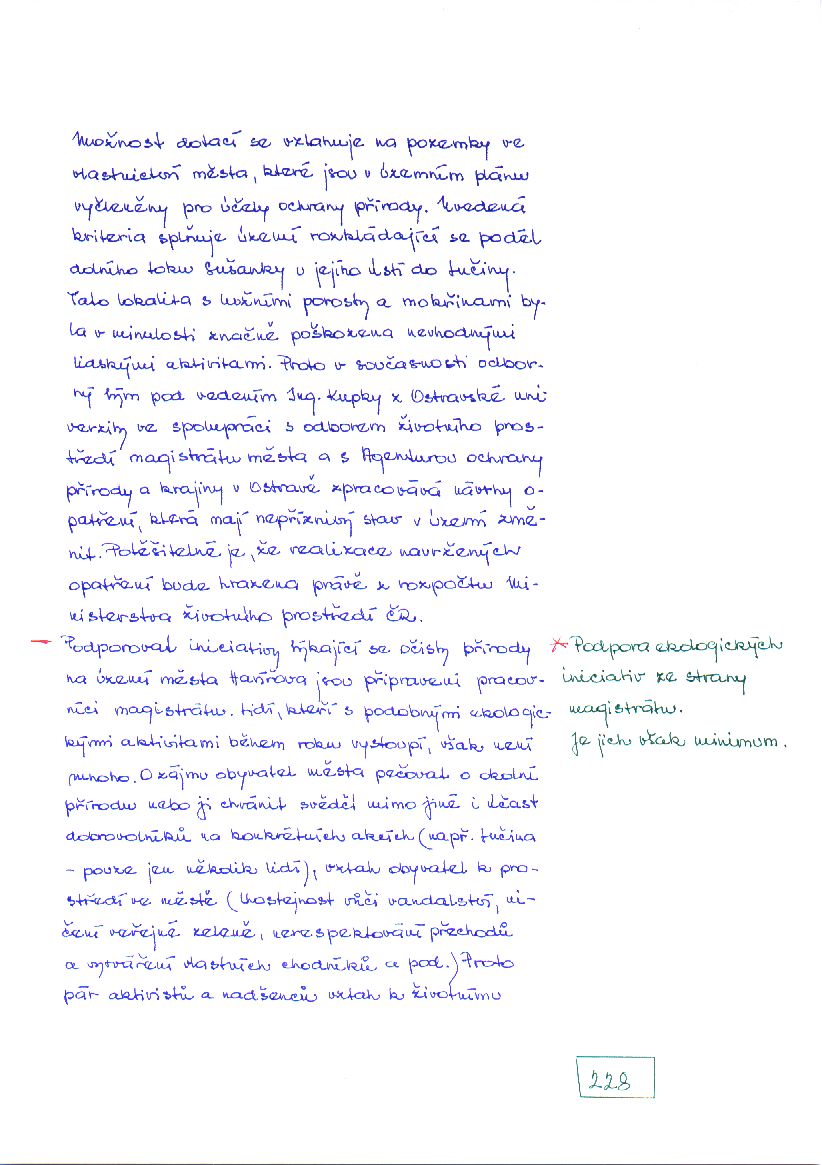 Možnost dotací se vztahuje na pozemky ve
vlastnictví města, které jsou v územním plánu
vyčleněny pro účely ochrany přírody. Uvedená
kriteria splňuje území rozkládající se podél
dolního toku Sušanky u jejího ústí do Lučiny.
Tato lokalita s lužními porosty a mokřinami by-
la v minulosti značně poškozena nevhodnými
lidskými aktivitami. Proto v současnosti odbor-
ný tým pod vedením Ing. Kupky z Ostravské uni
verzity ve spolupráci s odborem životního pros-
tředí magistrátu města a s Agenturou ochrany
přírody a krajiny v Ostravě zpracovává návrhy o-
patření, která mají nepříznivý stav v území změ-
nit. Potěšitelné je, že realizace navržených
opatření bude hrazena právě z rozpočtu Mi-
nisterstva životního prostředí ČR.
– Podporovat iniciativy týkající se očisty přírody
na území města Havířova jsou připraveni pracov-
níci magistrátu. Lidí, kteří s podobnými ekologic-
kými aktivitami během roku vystoupí, však není
mnoho. O zájmu obyvatel města pečovat o okolní
přírodu nebo ji chránit svědčí mimo jiné i účast
dobrovolníků na konkrétních akcích (např. Lučina
– pouze jen několik lidí), vztah obyvatel k pro-
středí ve městě (lhostejnost vůči vandalství, ni-
čení veřejné zeleně, nerespektování přechodů
a vytváření vlastních chodníků a pod.) Proto
pár aktivistů a nadšenců vztah k životnímu
* Podpora ekologických
iniciativ ze strany
magistrátu.
Je jich však minimum.
228